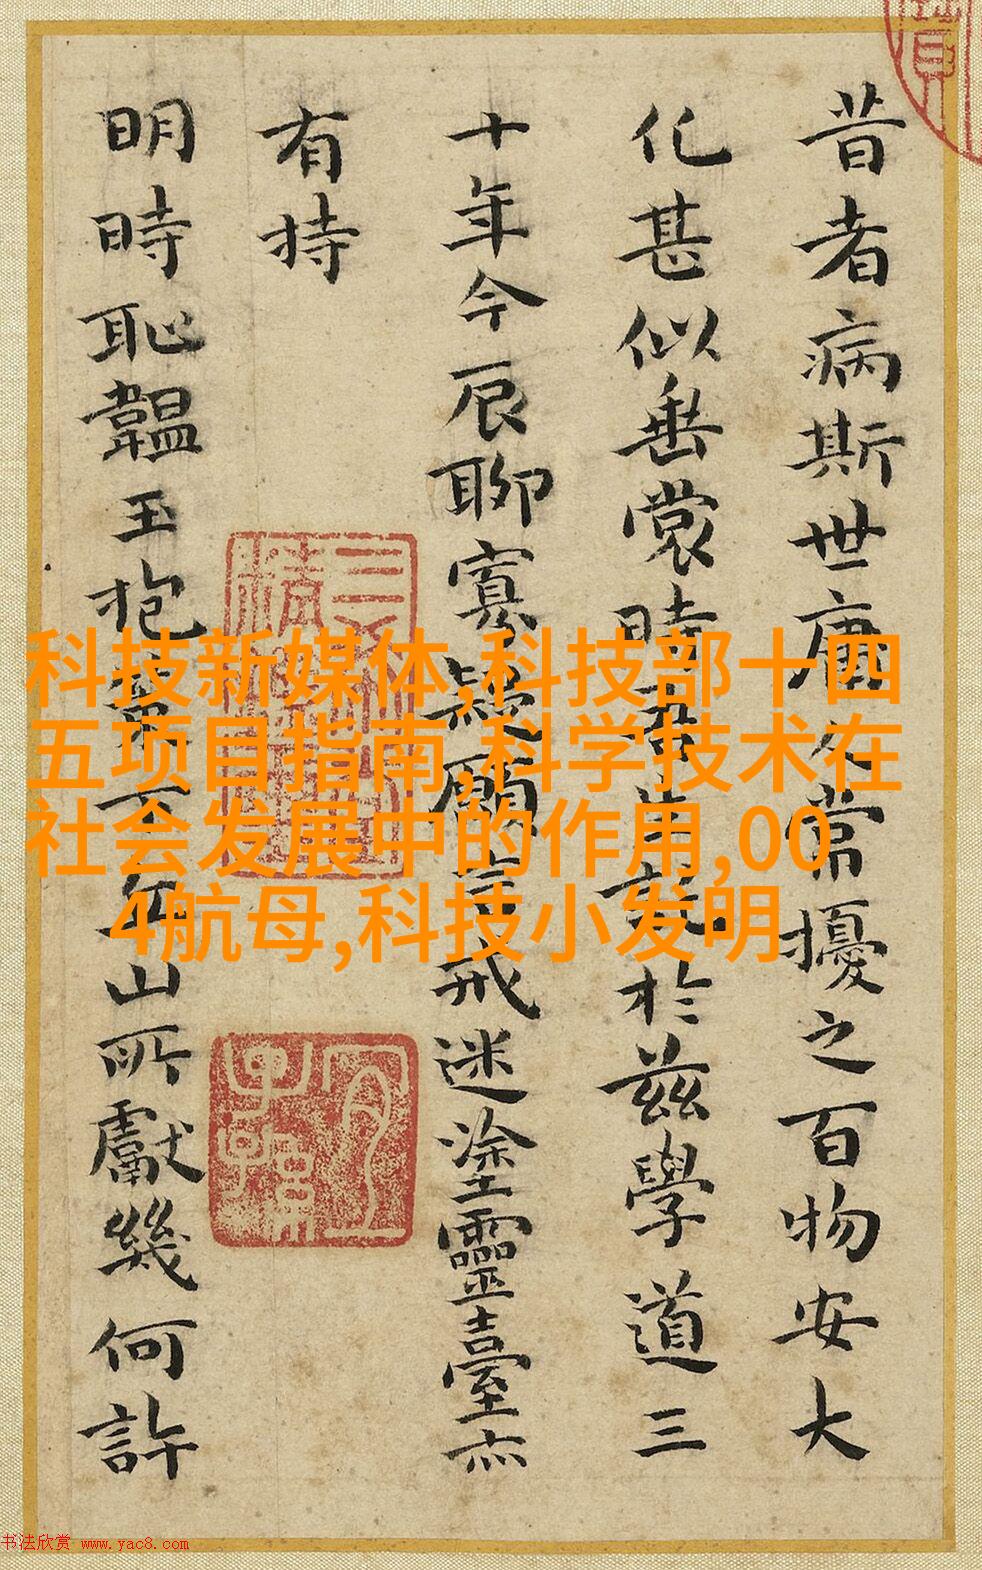 昔者病斯世庸人常擾之百物安大
化甚似垂裳時於茲學道三
十年今辰聊寡疑願言戒迷塗靈臺亦
有持
明時恥韞玉抱山所獻幾何許
科技新媒体,科技部十四
五项目指南,科学技术在
社会发展中的作用,00
4航母,科技小发明
书法欣赏 www.yac8.com